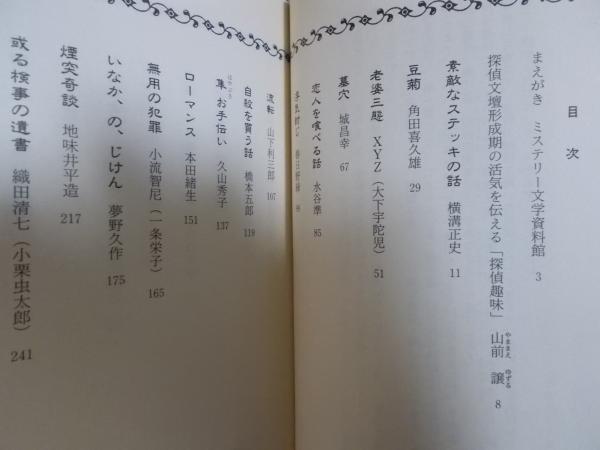 目次
まえがき ミステリー文学資料館 3
探偵文壇形成期の活気を伝える「探偵趣味」 山前 譲 8
やままえ ゆずる
素敵なステッキの話 横溝正史 11
豆菊 角田喜久雄 29
老婆三態 XYZ(大下宇陀児) 51
墓穴 城昌幸 67
恋人を喰べる話 水谷準 85
流転 山下利三郎 107
自殺を買う話 橋本五郎 119
隼お手伝い 久山秀子 137
はやぶさ
ローマンス 本田緒生 151
無用の犯罪 小流智尼(一条栄子) 165
いなか、の、じけん 夢野久作 175
煙突奇談 地味井平造 217
或る検事の遺書 織田清七(小栗虫太郎) 241